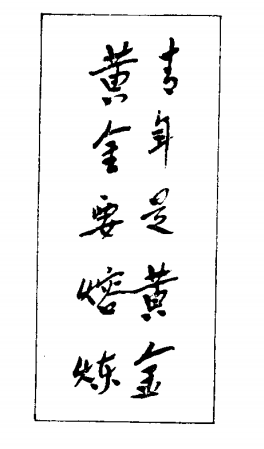 青年是黄金
黄金要熔炼